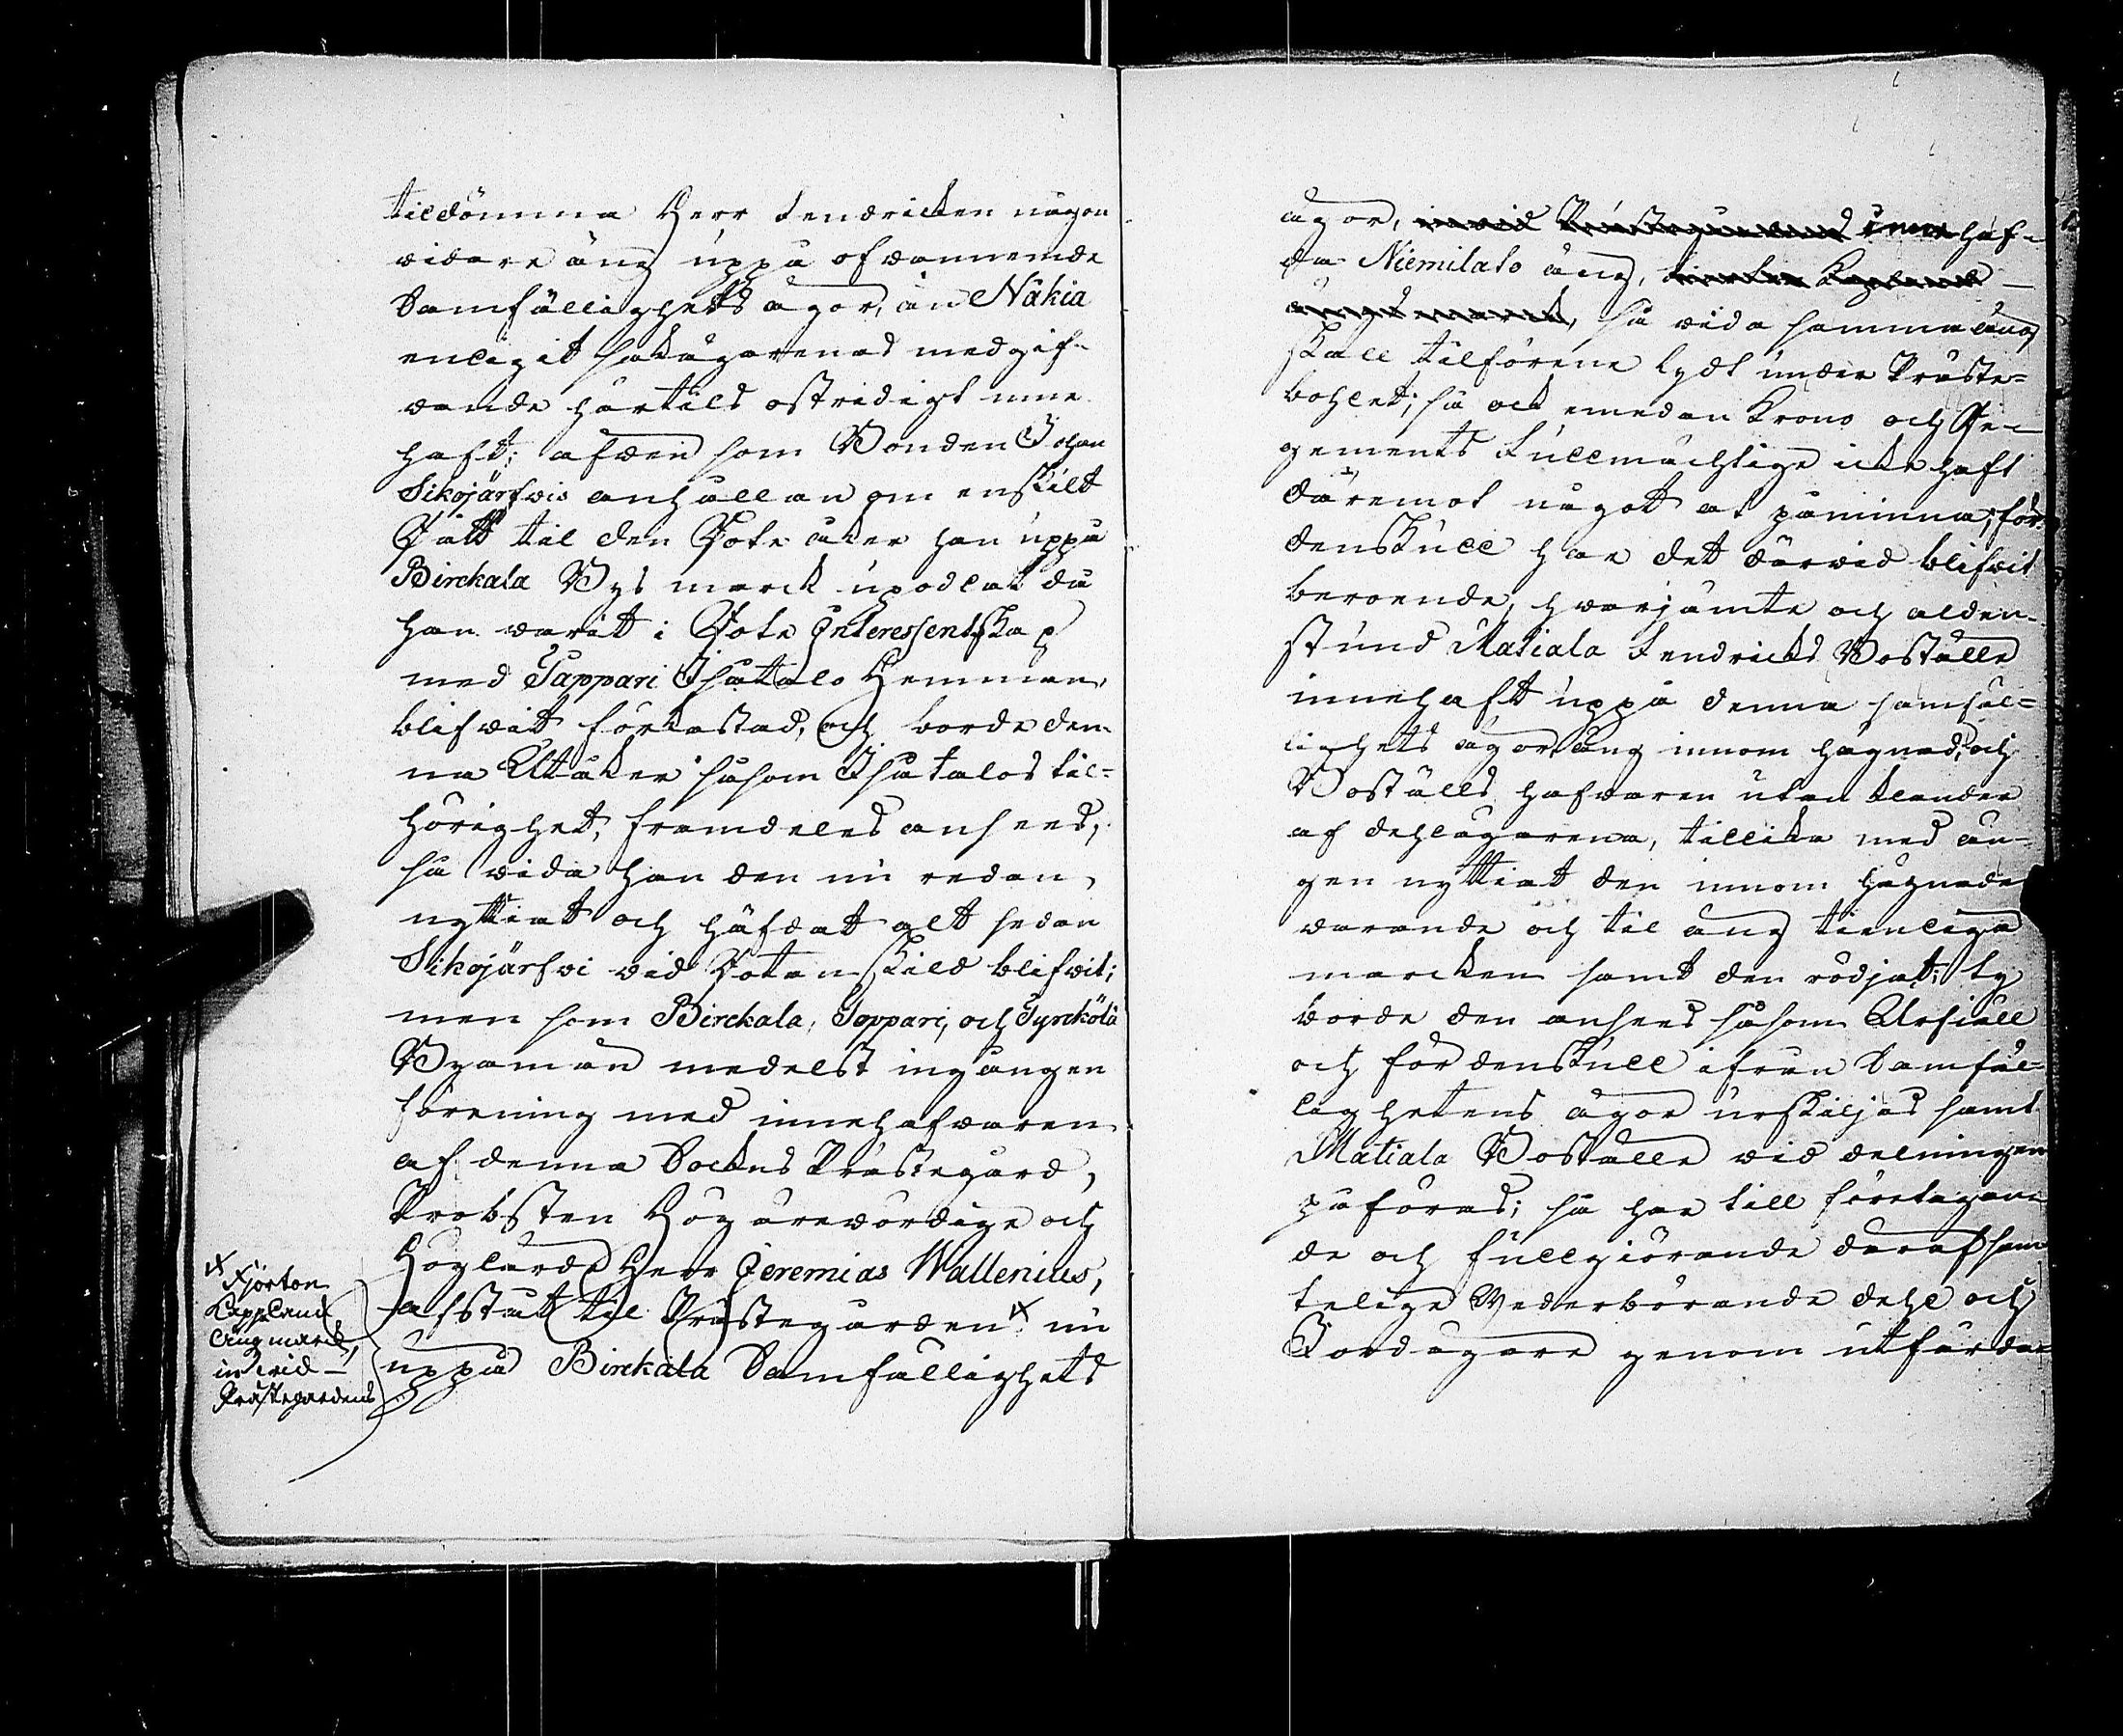 tildömma Herr Fendricken någon
vidare äng uppå ofvannemde
Samfällighets ägor, än Näkia
enligit sakägarenas medgif-
vande härtils ostridigt inne-
haft; äfven som Bonden Johan
Sikojärfvis anhållan om enskilt
Rätt til den Rote åker han uppå
Birckala Bys marck upodlat då
han varit i Rote Interessentskap
med Pappari Isotalo Hemman,
blifvit förkastad, och borde den-
na Utåker såsom Isotalos til-
hörighet, framdeles anses,
så vida han den nu redan
nyttiat och häfdat alt sedan
Sikojärfvi vid Rotan skild blifvit;
men som Birckala, Pappari, och Pyrckölä
Byamän medelst ingången
förening med innehafvaren
af denna Sockns Prästegård,
Probsten Högärevördige och
Höglärde Herr Jeremias Wallenius,
afstått til Prästegården # nu
uppå Birckala Samfällighets
# Fjorton
Kappland
Ängmarck,
invid
Prästegårdens
ägor, invid Prästegårdens innehaf-
da Niemilato äng, Kapland
ängs marck, så vida samma äng
skall tilförene lydt under Präste-
bohlet; så ock emedan Krono och Re-
gements Fullmächtige icke haft
däremot något at påminna; för
denskull har det därvid blifvit
beroende, hvarjämte och alden-
stund Matiala Fendricks Boställe
innehaft uppå denna samfäl-
lighets ägor äng innom hägnad, och
Boställs hafvaren utan klander
af dehlägarena, tillika med än-
gen nyttiat den innom hägnaden
varande och til äng tienliga
marcken samt den rödjat; ty
borde den anses såsom Urfiäll
och fördenskull ifrån Samfäl-
lighetens ägor urskiljas samt
Matiala Boställe vid delningen
påföras; så har till företagan-
de och fullgiörande däraf sam-
telige Vederbörande dehl och
Jordägare genom utfärda-